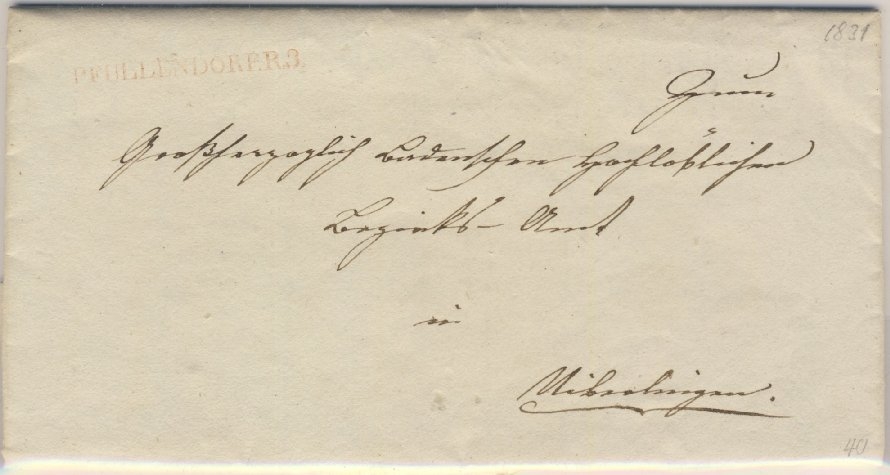 1831
PFULLENDORF R.3.
Zum
Großherzoglich Badenschen Hochlöblichen
Bezirks-Amt
in
Uiberlingen.
40